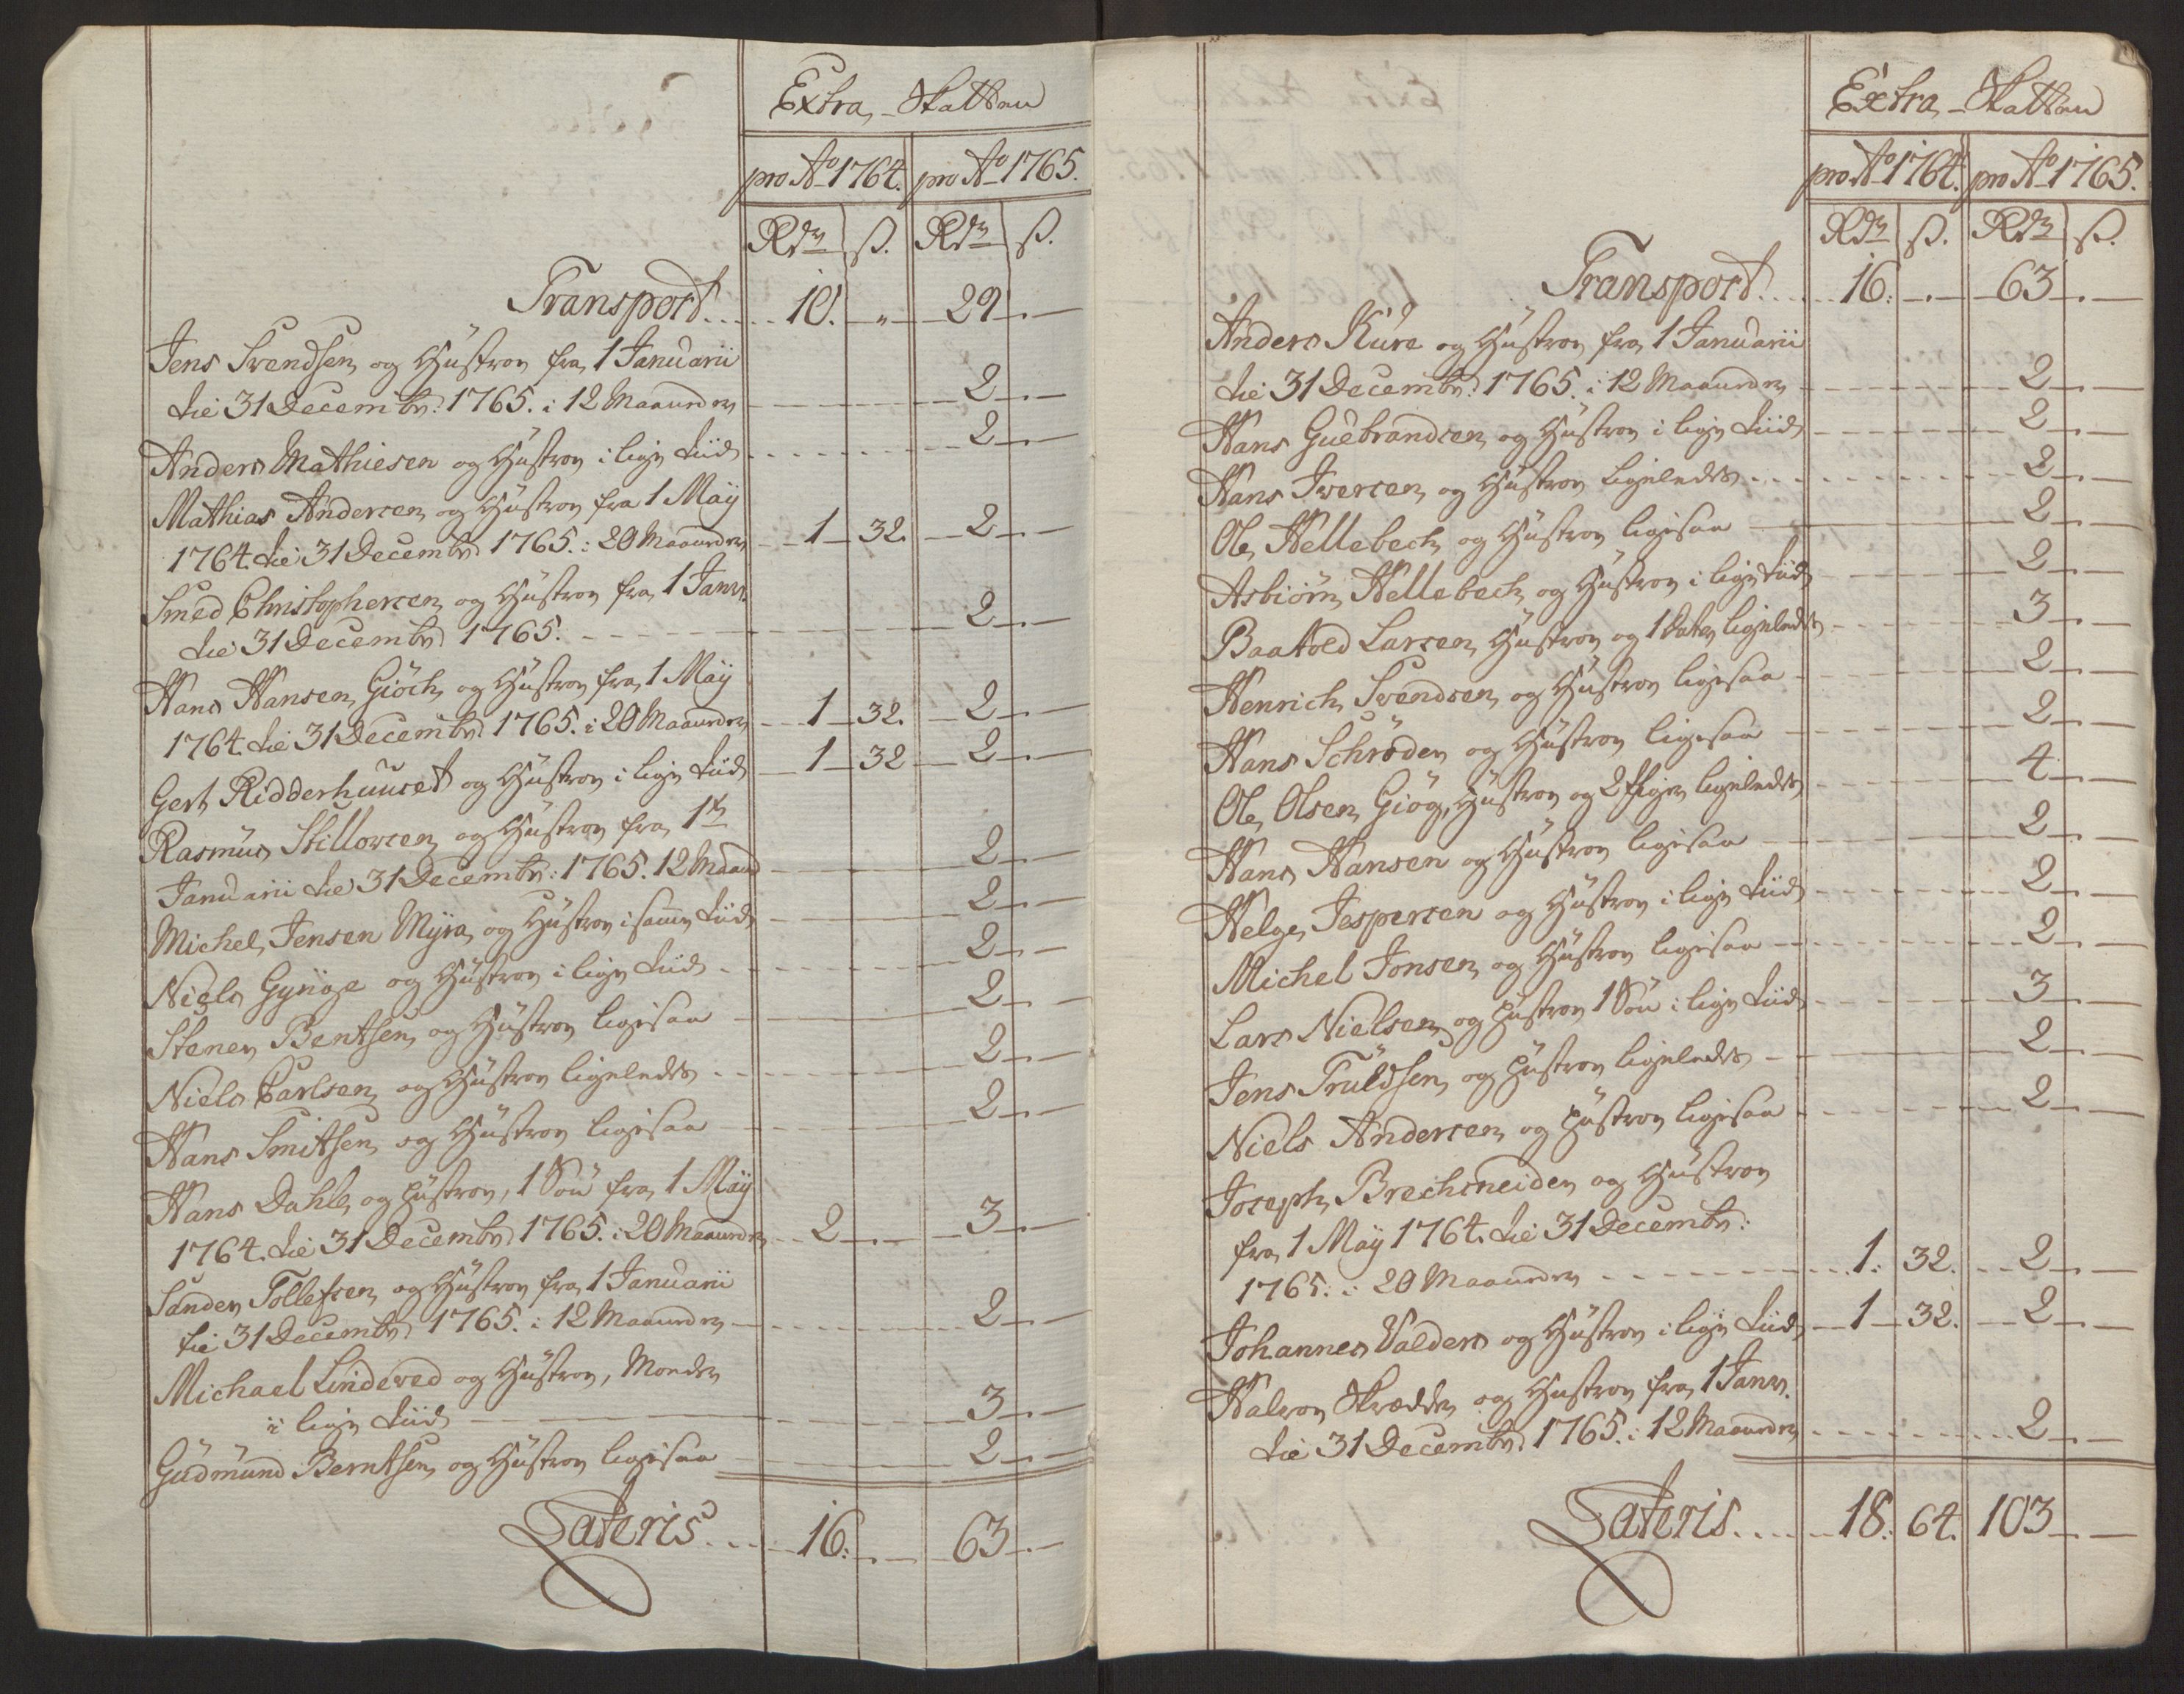 Extra Skatten
pro Ao 1764. pro Ao 1765.
Rdr ß. Rdr ß.
Transport 10. " 29
Jens Svendsen og Hustrou fra 1 Januarii
til 31 Decembr: 1765. i 12 Maaneder 2
Anders Mathiesen og Hustrou i lige Tiid 2
Mathias Andersen og Hustrou fra 1 Maÿ
1764. til 31 Decembr 1765. i 20 Maaneder 1 32. 2
Smed Christophersen og Hustrou fra 1 Janr.
til 31 Decembr 1765. 2
Hans Hansen Giöch og Hustrou fra 1 Maÿ
1764. til 31 Decembr 1765. i 20 Maaneder 1 32. 2
Gert Ridderhuuset og Hustrou i lige Tiid 1 32 2
Rasmus Stillowsen og Hustrou fra 1te
Januarii til 31 Decembr: 1765. 12 Maaned 2
Michel Jensen Myra og Hustrou i samme Tiid 2
Niels Gynge og Hustrou i lige Tiid 2
Stener Bentsen og Hustrou ligesaa 2
Niels Carlsen og Hustrou ligeledes 2
Hans Smitsen og Hustrou ligesaa 2
Hans Dahle og Hustrou, 1 Søn fra 1 Maÿ
1764. til 31 Decembr 1765. i 20 Maaneder 2 3
Sander Tollefsen og Hustrou fra 1 Januarii
til 31 Decembr 1765. i 12 Maaneder 2
Michael Lindeved og Hustrou, Moder
i lige Tiid 3
Gudmund Berntsen og Hustrou ligesaa 2
Lateris 16. 63

Extra Skatten
pro Ao 1764. pro Ao 1765.
Rdr ß. Rdr ß.
Transport 16. 63
Anders Kure og Hustrou fra 1 Januarii
til 31 Decembr: 1765. i 12 Maaneder 2
Hans Guebrandsen og Hustrou i lige Tiid 2
Hans Iversen og Hustrou ligeledes 2
Ole Hellebech og Hustrou ligesaa 2
Asbiörn Hellebech og Hustrou i lige Tiid 2
Baatold Larsen, Hustrou og 1 Dater ligeledes 3
Henrich Svendsen og Hustrou ligesaa 2
Hans Schröder og Hustrou ligesaa 2
Ole Olsen Giög, Hustrou og 2 Piger ligeledes 4
Hans Hansen og Hustrou ligesaa 2
Helge Jespersen og Hustrou i lige Tiid 2
Michel Jonsen og Hustrou ligesaa 2
Lars Nielsen og Hustrou 1 Søn i lige Tiid 3
Jens Truldsen og Hustrou ligeledes 2
Niels Andersen og Hustrou ligesaa 2
Joseph Brechsneider og Hustrou
fra 1 Maÿ 1764. til 31 Decembr:
1765. i 20 Maaneder 1. 32. 2
Johannes Valders og Hustrou i lige Tiid 1 32. 2
Halvor Skrædder og Hustrou fra 1 Janr.
til 31 Decembr. 1765. i 12 Maaneder 2
Lateris 18. 64. 103